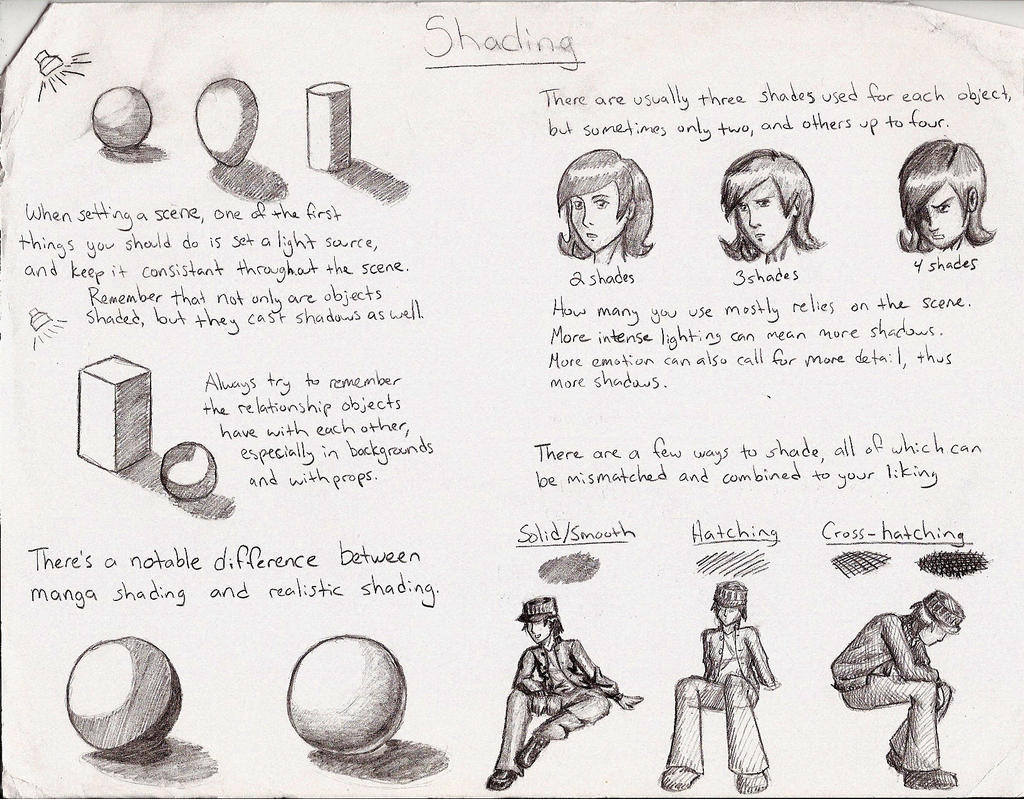 Shading
When setting a scene, one of the first
things you should do is set a light source,
and keep it consistant throughout the scene.
Remember that not only are objects
shaded, but they cast shadows as well.
Always try to remember
the relationship objects
have with each other,
especially in backgrounds
and with props.
There's a notable difference between
manga shading and realistic shading.
There are usually three shades used for each object,
but sometimes only two, and others up to four.
2 shades
3 shades
4 shades
How many you use mostly relies on the scene.
More intense lighting can mean more shadows.
More emotion can also call for more detail, thus
more shadows.
There are a few ways to shade, all of which can
be mismatched and combined to your liking
Solid/Smooth
Hatching
Cross-hatching